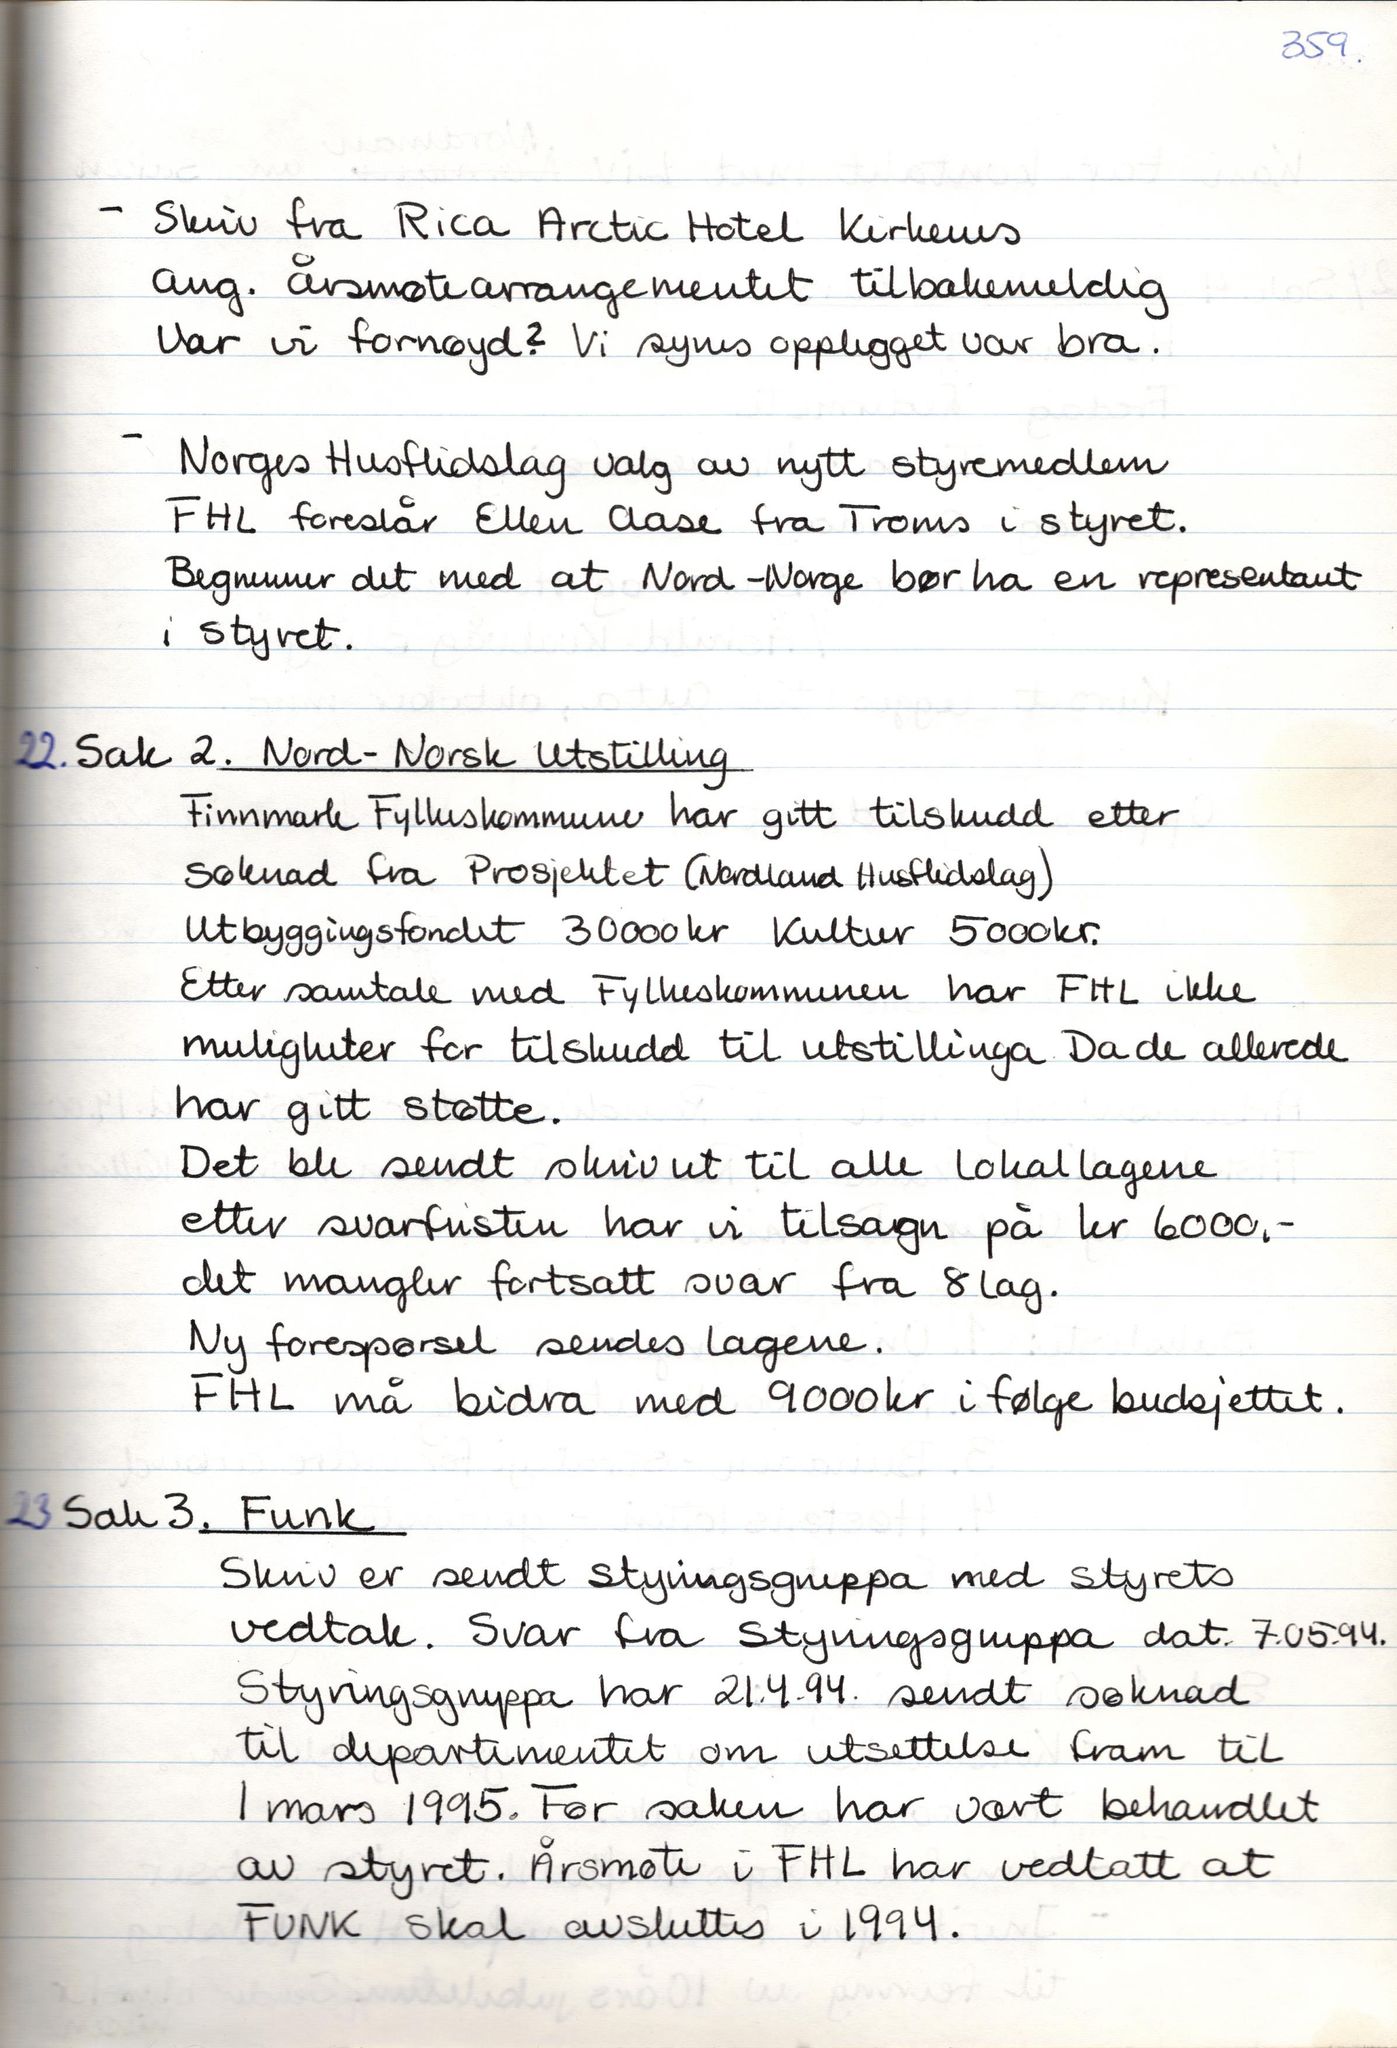 359.
- Skriv fra Rica Arctic Hotel Kirkenes
ang. Årsmøtearrangementet tilbakemeldig
Var vi fornøyd? Vi synes opplegget var bra.
- Norges Husflidslag valg av nytt styremedlem
FHL foreslår Ellen Aase fra Troms i styret.
Begrunner det med at Nord-Norge bør ha en representant
i styret.
22. Sak 2. Nord-Norsk Utstilling
Finnmark Fylkeskommune har gitt tilskudd etter
søknad fra Prosjektet (Nordland Husflidslag)
Utbyggingsfondet 30000kr Kultur 5000kr.
Etter samtale med Fylkeskommunen har FHL ikke
muligheter for tilskudd til utstillinga Da de allerede
har gitt støtte.
Det ble sendt skriv ut til alle lokallagene
etter svarfristen har vi tilsagn på kr 6000,-
det mangler fortsatt svar fra 8 lag.
Ny forespørsel sendes lagene.
FHL må bidra med 9000kr i følge budsjettet.
23 Sak 3. Funk
Skriv er sendt styringsgruppa med styrets
vedtak. Svar fra Styringsgruppa dat. 7.05.94.
Styringsgruppa har 21.4.94. sendt søknad
til departementet om utsettelse fram til
1 mars 1995. Før saken har vært behandlet
av styret. Årsmøte i FHL har vedtatt at
FUNK skal avsluttes i 1994.